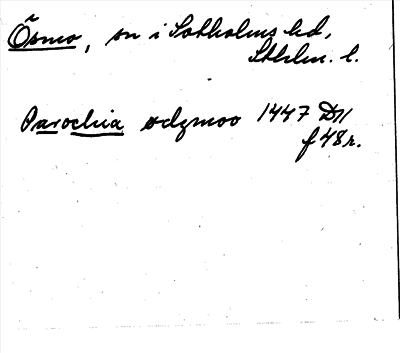 Ösmo, sn i Sotholms hd,
Sthlm. l.
Parochia odzmoo 1447 D11
f 48 r.